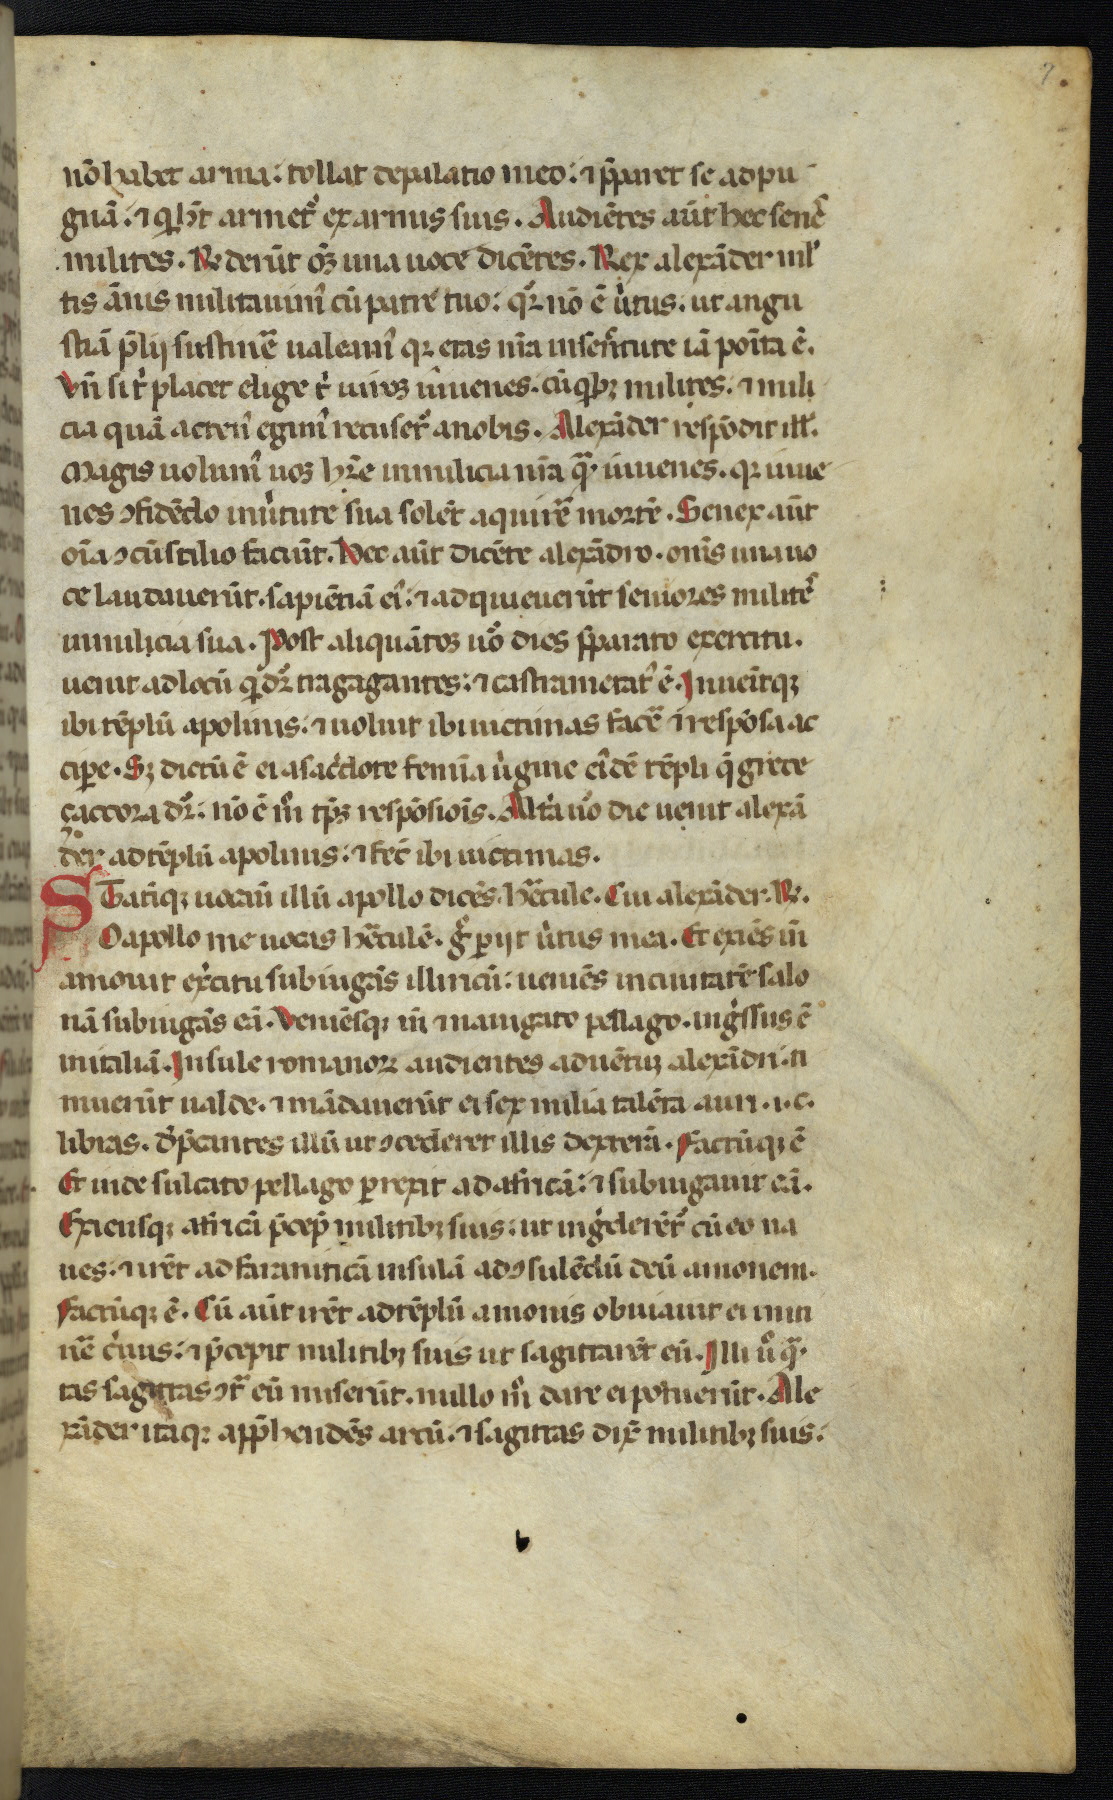 7
nō habet arma: tollat depalatio meo: ⁊ p̄paret se adpu
gnā: ⁊ q̇ hn̄t armet᷑ ex armis suis. Audiētes aūt hec senes
milites. R̄ derūt oēs una uoce dicētes. Rex alexāder ml̓
tis ānis militauim᷒ cū patre tuo: qr̄ nō ē u̓tus. ut angu
stiā p̄lij sustinē͛ ualeam᷒ qr etas nr̄a insen̄ctute iā poīta ē.
Vn̄ si t̓ placet elige t̓ uiros iuuenes. cū qb; milites. ⁊ mili
cia quā acten᷒ egim᷒ recuset᷑ anobis. Alexāder respōdit ill̓.
Magis uolum᷒ uos hr̄e inmilicia nr̄a qᵃ iuuenes. qr iuue
nes ↄfidēdo inu̓tute sua solēt aquirē͛ mortē. Senex aūt
oīa ↄcū silio faciūt. Hec aūt dicēte alexādro. om̄s una uo
ce laudauerūt. sapiētiā ei᷒: ⁊ adquieuerūt seniores milites
inmilicia sua. Post aliquātos uº dies p̄parato exercitu.
uenit adlocū q̇ dr̄ tragagantes: ⁊ castrametat᷒ ē. Inueītq;
ibi tēplū apolinis: ⁊ uoluit ibi uictimas facē͛ ⁊ respōsa ac
cipe. S; dictū ē ei asac̓dote femīa u̓gine ei᷒dē tēpli q̄ grece
çaccora dr̄: nō ē m̊ tp̄s respōsiōis. Alt̓a uº die uenit alexā
der adtēplū apolinis: ⁊ fec̄ ibi uictimas.
Statiq; uocauī illū apollo dicēs. hercule. Cui alexāder. R̄.
O apollo me uocas herculē. gº p̲ijt u̓tus mea. Et exiēs in̄
amouit ex̓citū subiugās illiricū: ueniēs inciuitatē salo
nā subiugās eā. Veniēsq; in̄ ⁊ nauigato pellago. ing̓ssus ē
initaliā. Insule romanor̄ audientes aduētū alexādri. ti
muerūt ualde. ⁊ mādauerūt ei sex milia talēta auri. ⁊.c.
libras. d̓p̄cantes illū ut ↄcederet illis dexterā. Factūq; ē
Et inde sulcato pellago p̲rexit adafricā: ⁊ subiugauit eā.
Exiensq; africā p̄cep̄ militib; suis: ut ing̓derēt᷑ cū eo na
ues: ⁊ irēt ad faraniticā insulā adↄsulēdū deū amonem.
Factūq; ē. Cū aūt irēt adtēplū amonis obuiauit ei inti
nē͛ c̓uus: ⁊ p̄cepit militib; suis ut sagittarēt eū. Illi uº qᵃ
tas sagittas ↄt͛ eū miserūt. nullo m̊ dare ei potuerūt. Ale
xāder itaq; app̄hendēs arcū. ⁊ sagittas dix̄ militib; suis.